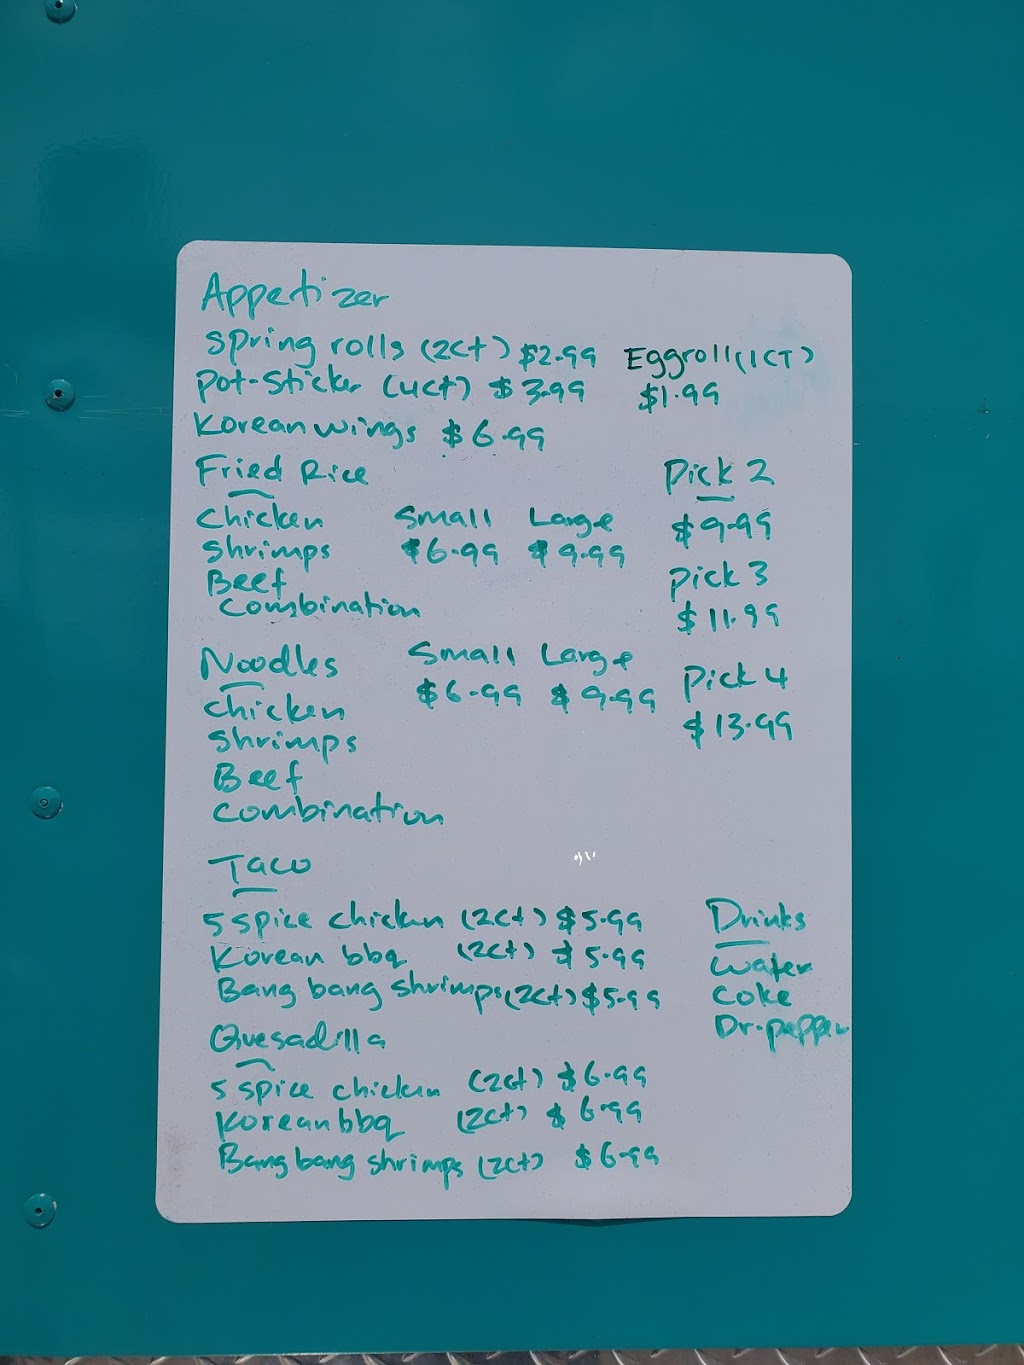 Appetizer
Spring rolls (2ct) $2.99 Eggroll (1CT)
Pot-Sticker (4ct) $3.99 $1.99
Korean wings $6.99
Fried Rice Pick 2
Chicken Small Large $9.99
Shrimps $6.99 $9.99
Beef Pick 3
Combination $11.99
Noodles Small Large Pick 4
Chicken $6.99 $9.99 $13.99
Shrimps
Beef
Combination
Taco
5 spice chicken (2ct) $5.99 Drinks
Korean bbq (2ct) $5.99 Water
Bang bang shrimps (2ct) $5.99 Coke
Quesadilla Dr. pepper
5 spice chicken (2ct) $6.99
Korean bbq (2ct) $6.99
Bang bang shrimps (2ct) $6.99